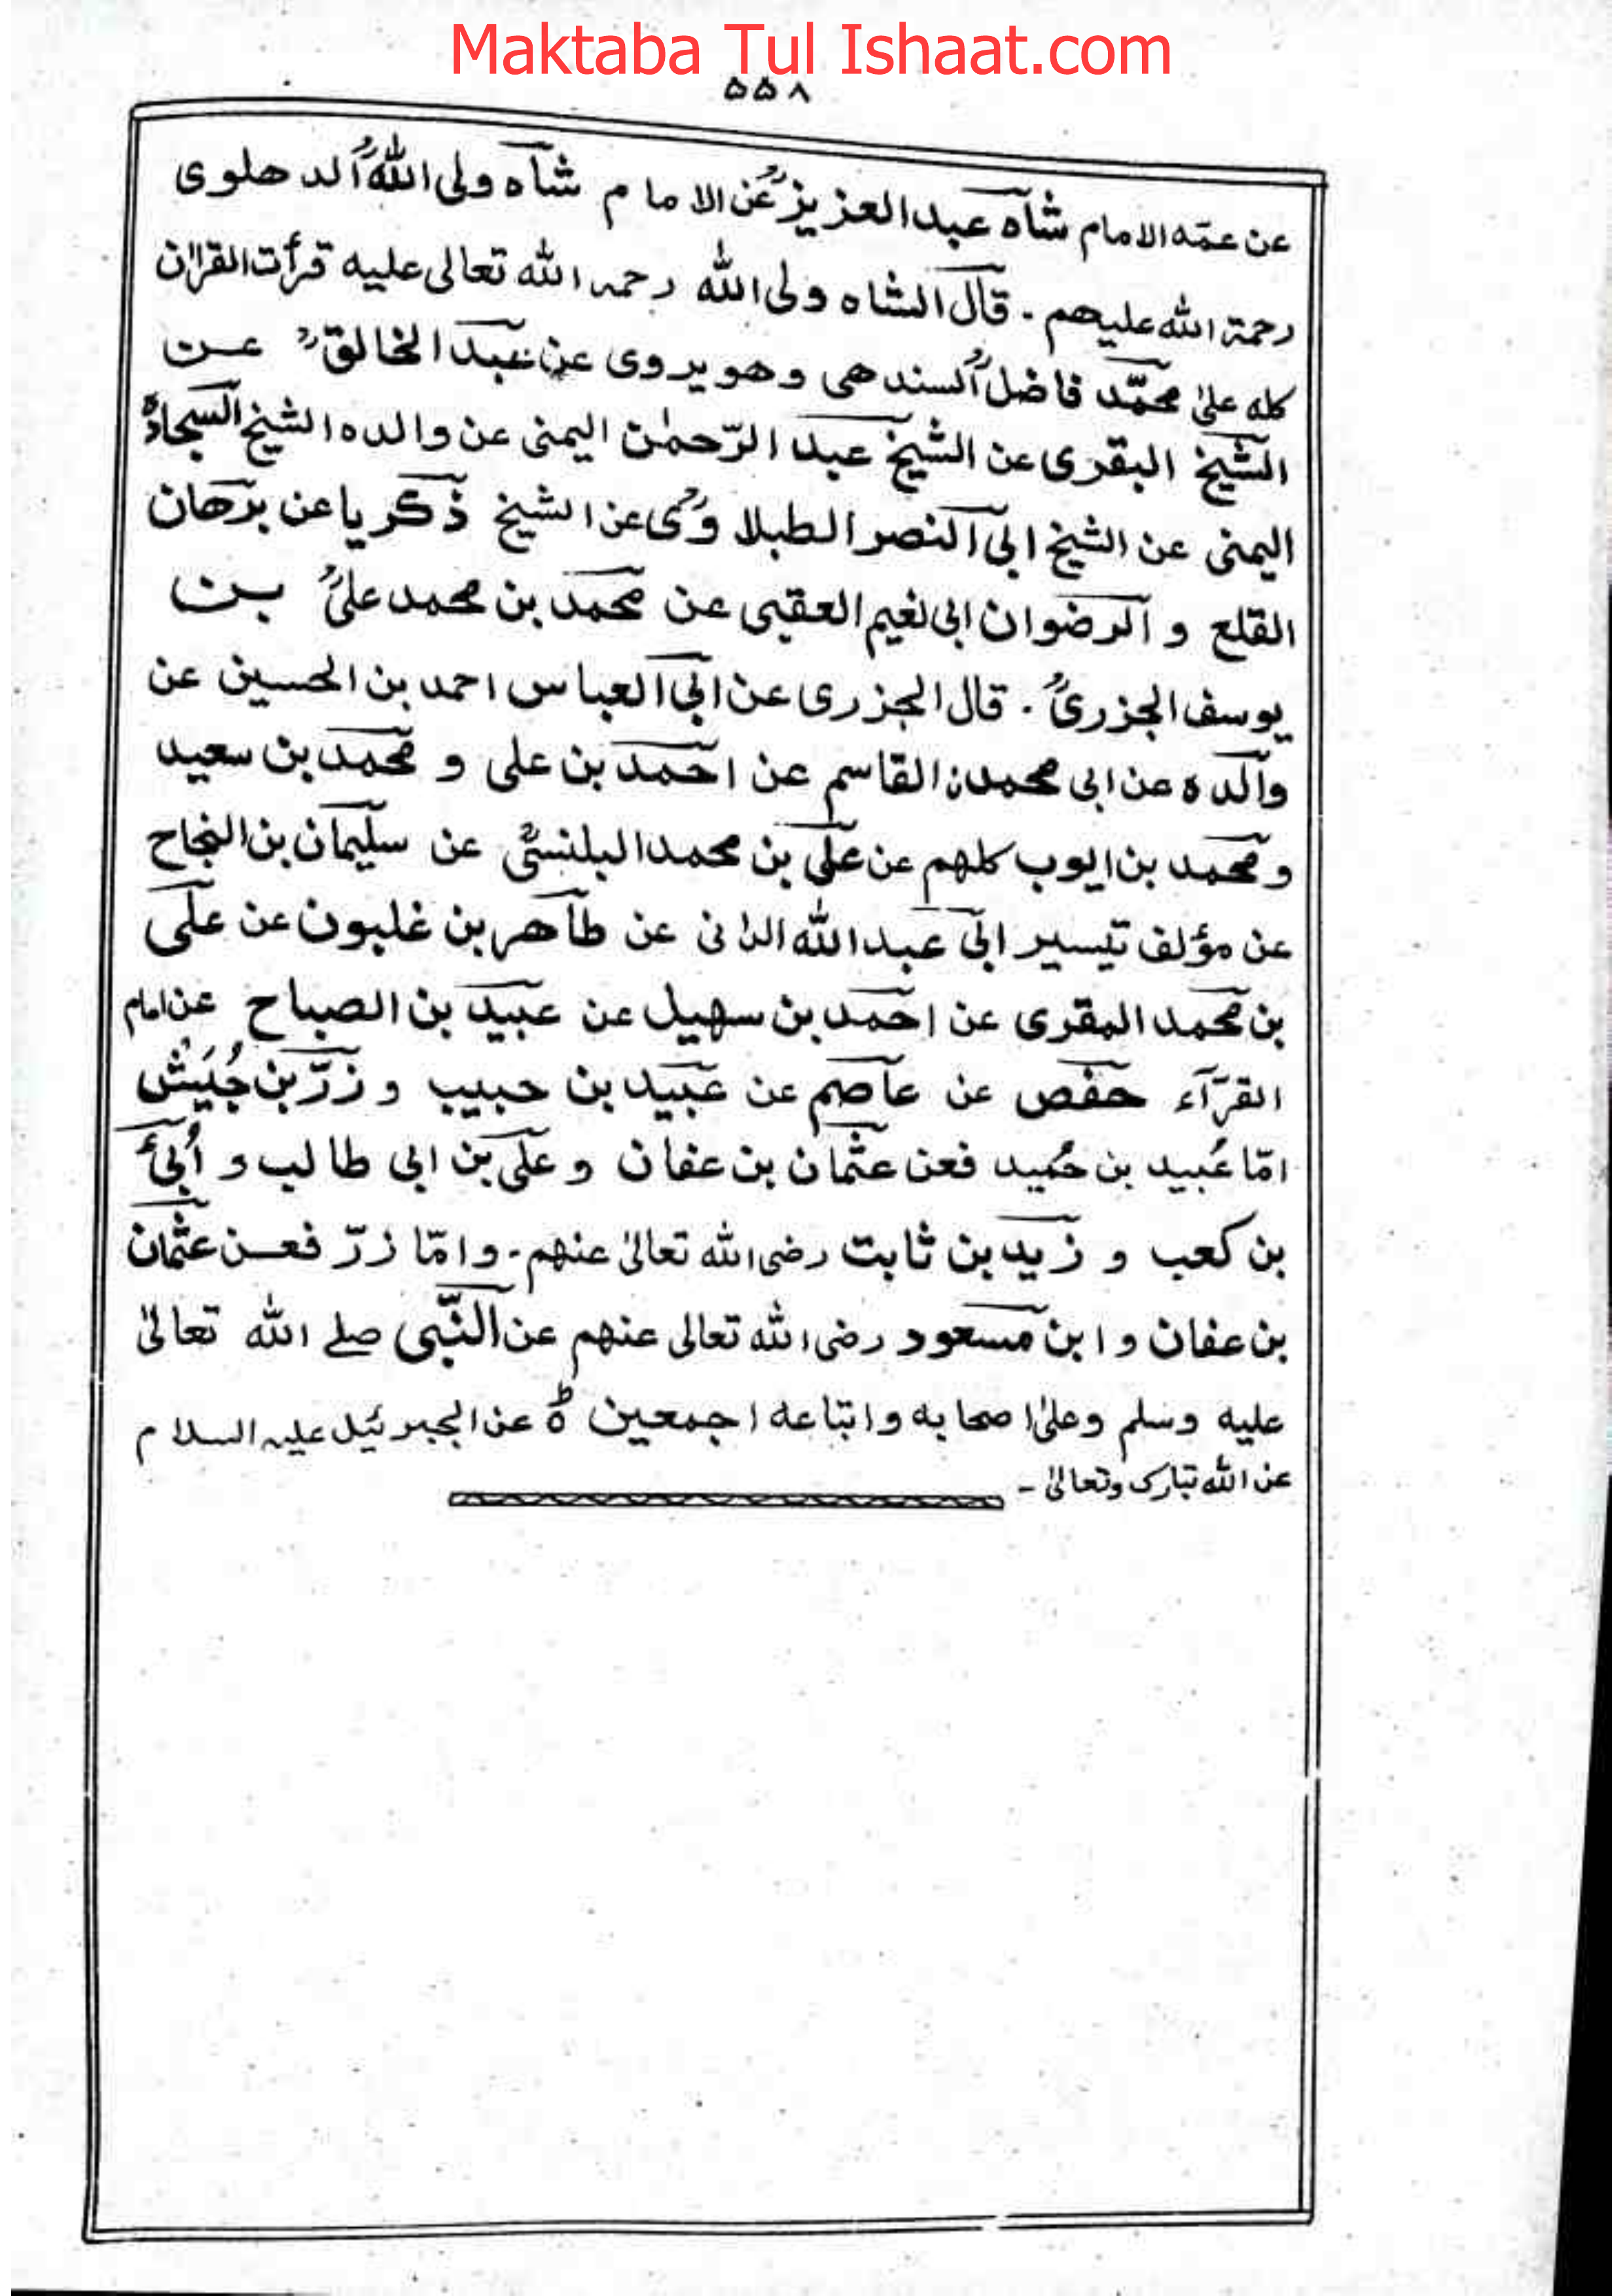 Maktaba Tul Ishaat.com
۵۵۸
عن عمّه الامام شاه عبدالعزيزؒ عن الامام شاه ولى اللهؒ الدهلوى
رحمة الله عليهم ۔ قال الشاه ولى الله رحمه الله تعالى عليه قرأت القرآن
كله علىٰ محمّد فاضلؒ السندهى وهو يروى عن عبد الخالقؒ عن
الشيخ البقرى عن الشيخ عبد الرّحمٰن اليمنى عن والده الشيخ السجادة
اليمنى عن الشيخ ابى النصر الطبلاوىؒ عن الشيخ ذكريا عن برهان
القلع و الرضوان ابى نغيم العقبى عن محمد بن محمد علىؒ بن
يوسف الجزرىؒ ۔ قال الجزرى عن ابى العباس احمد بن الحسين عن
والده عن ابى محمدن القاسم عن احمد بن على و محمد بن سعيد
و محمد بن ايوب كلهم عن على بن محمد البلنسىؒ عن سليمان بن النجاح
عن مؤلف تيسير ابى عبد الله الدانى عن طاهر بن غلبون عن على
بن محمد المقرى عن احمد بن سهيل عن عبيد بن الصباح عن امام
القرّآء حفص عن عاصم عن عبيد بن حبيب و زرّ بن جُبَيْش
امّا عُبيد بن حُميد فعن عثمان بن عفان و على بن ابى طالب و اُبىّ
بن كعب و زيد بن ثابت رضى الله تعالىٰ عنهم ۔ و امّا زرّ فعن عثمان
بن عفان و ابن مسعود رضى الله تعالى عنهم عن النّبى صلے الله تعالىٰ
عليه وسلم وعلىٰ اصحابه و اتباعه اجمعين ۃؕ عن الجبرئيل عليه السلام
عن الله تبارك وتعالىٰ ۔